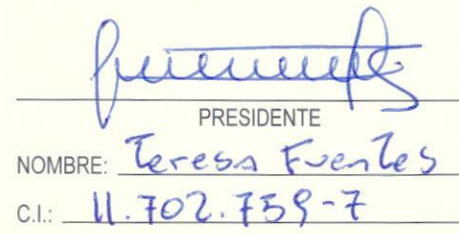 PRESIDENTE
NOMBRE: Teresa Fuentes
C.I.: 11.702.759-7